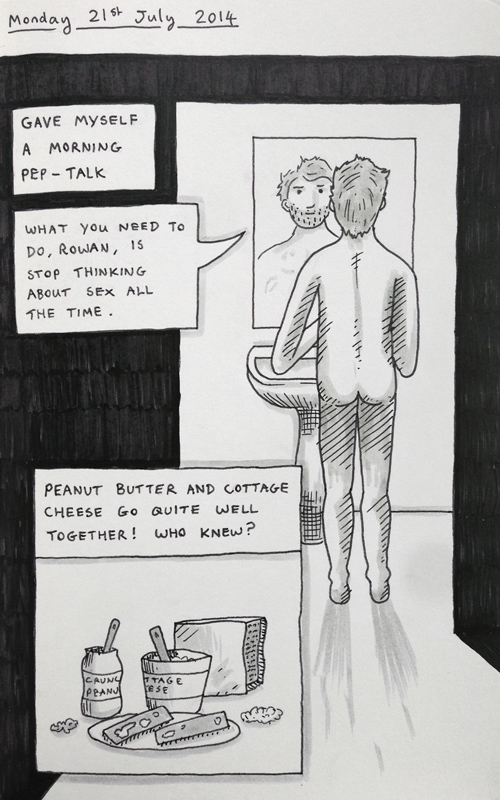 Monday 21st July 2014
GAVE MYSELF
A MORNING
PEP-TALK
WHAT YOU NEED TO
DO, ROWAN, IS
STOP THINKING
ABOUT SEX ALL
THE TIME.
PEANUT BUTTER AND COTTAGE
CHEESE GO QUITE WELL
TOGETHER! WHO KNEW?
CRUNC
PEANU
TTAGE
ESE